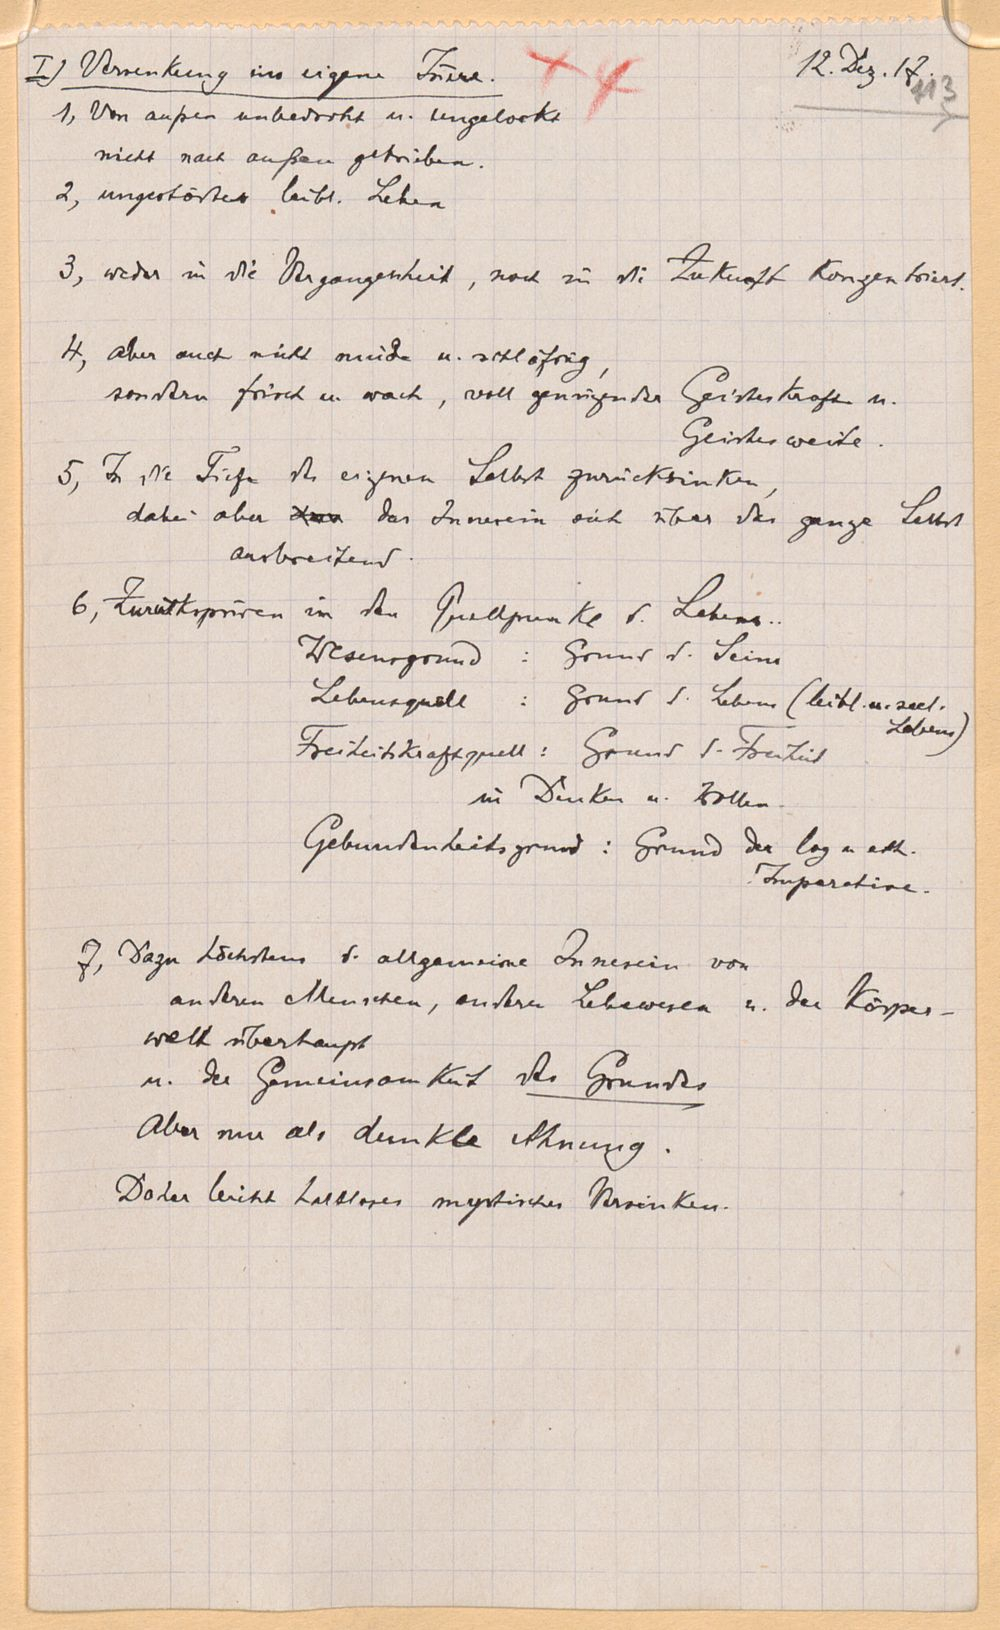 I) Versenkung ins eigene Innere. 12. Dez. 17.
113
1, Von außen unbedroht u. ungelockt
nicht nach außen getrieben.
2, ungestörtes leibl. Leben
3, weder in die Vergangenheit, noch in die Zukunft konzentriert.
4, aber auch nicht müde u. schläfrig,
sondern frisch u wach, voll genügender Geisteskraft u.
Geistesweite.
5, In die Tiefe des eigenen Selbst zurücksinken,
dabei aber das Innesein sich über das ganze Selbst
ausbreitend.
6, Zurückspüren in den Quellpunkt d. Lebens..
Wesensgrund : Grund d. Seins
Lebensquell : Grund d. Lebens (leibl. u. seel.
Lebens)
Freiheitskraftquell : Grund d. Freiheit
in Denken u. Wollen.
Gebundenheitsgrund : Grund der log u eth.
Imperative.
7, Dazu höchstens d. allgemeine Innesein von
anderen Menschen, anderen Lebewesen u. der Körper-
welt überhaupt
u. der Gemeinsamkeit des Grundes
Aber nur als dunkle Ahnung.
Daher leicht haltloses mystisches Versinken.